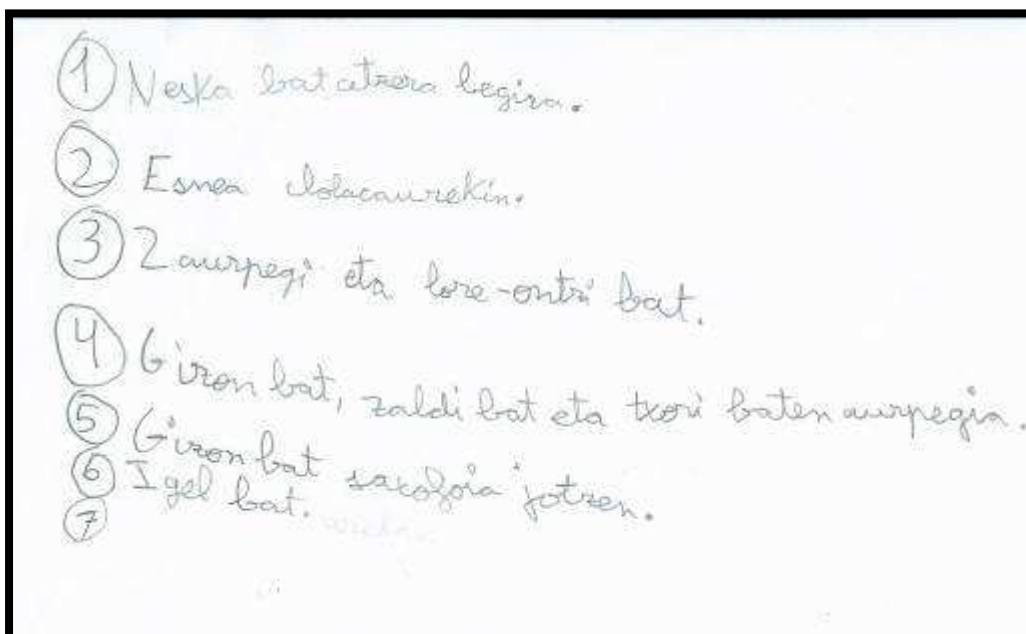 1 Neska bat atzera begira.
2 Esnea cholacaurekin.
3 2 aurpegi eta lore-ontzi bat.
4 Gizon bat, zaldi bat eta txori baten aurpegia.
5 Gizon bat saxofoia jotzen.
6 Igel bat.
7